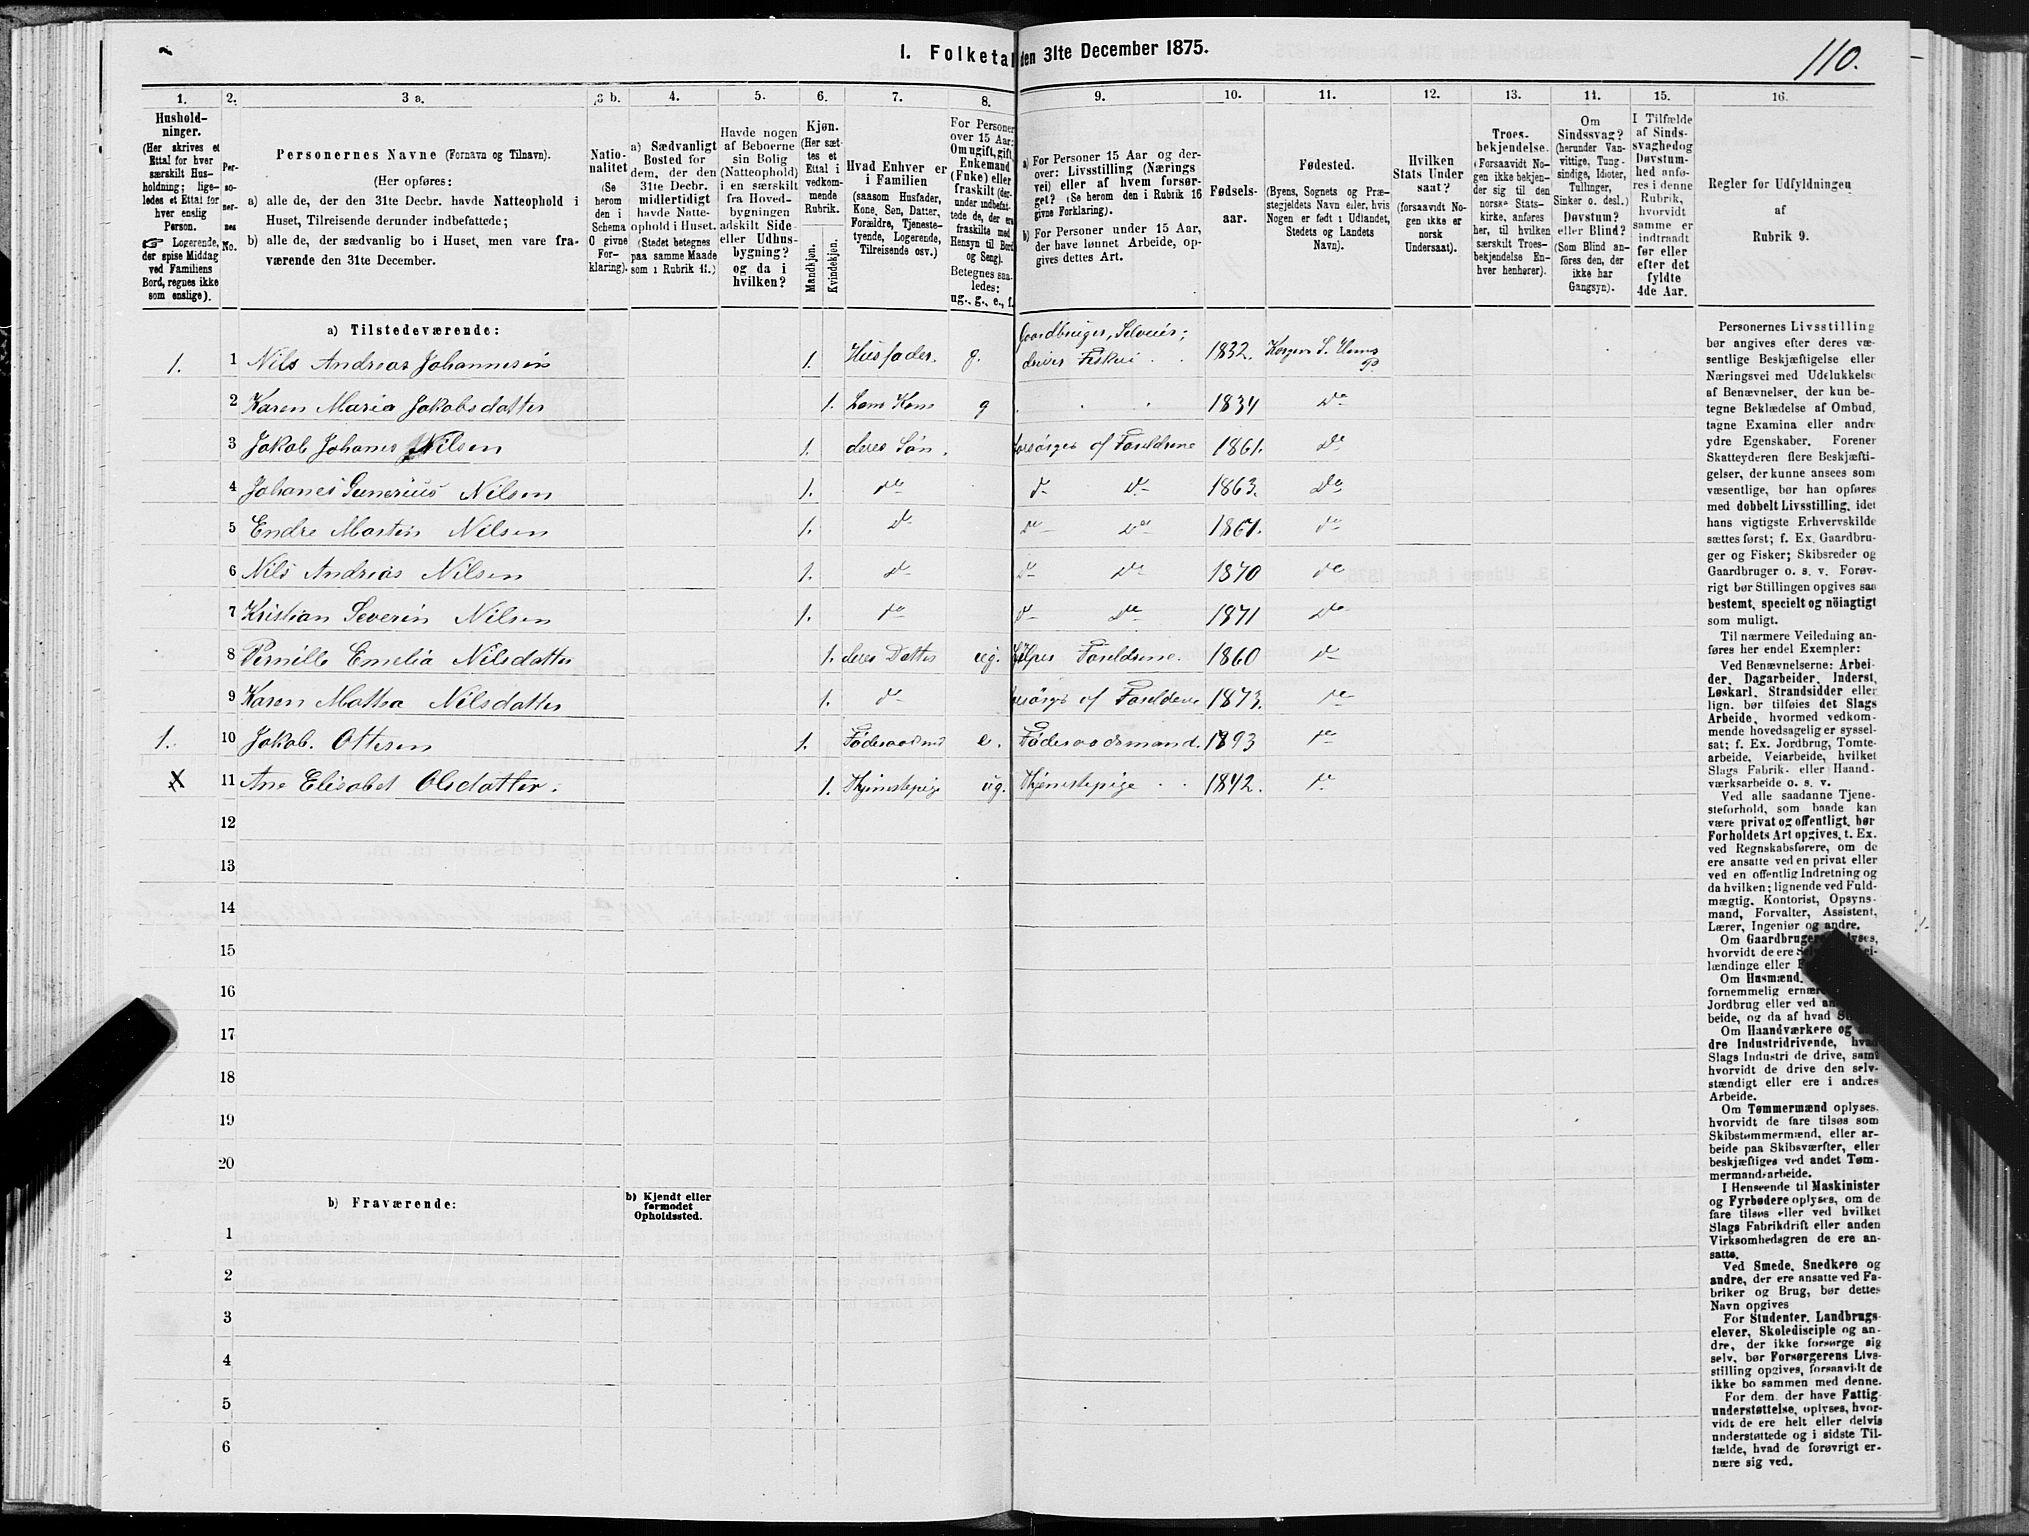 I. Folketal den 31te December 1875.
110.
1.
2.
3 a.
3 b.
4.
5.
6.
7.
8.
9.
10.
11.
12.
13.
14.
15.
16.
Hushold-
ninger.
(Her skrives et
Ettal for hver
særskilt Hus-
holdning; lige-
ledes et Ettal for
hver enslig
Person.
☞ Logerende,
der spise Middag
ved Familiens
Bord, regnes ikke
som enslige).
Per-
so-
ner-
nes
No.
Personernes Navne (Fornavn og Tilnavn).
(Her opføres:
a) alle de, der den 31te Decbr. havde Natteophold i
Huset, Tilreisende derunder indbefattede;
b) alle de, der sædvanlig bo i Huset, men vare fra-
værende den 31te December.
Natio-
nalitet
(Se
herom
den i
Schema
C givne
For-
klaring).
a) Sædvanligt
Bosted for
dem, der den
31te Decbr.
midlertidigt
havde Natte-
ophold i Huset.
(Stedet betegnes
paa samme Maade
som i Rubrik 11.)
Havde nogen
af Beboerne
sin Bolig
(Natteophold)
i en særskilt
fra Hoved-
bygningen
adskilt Side-
eller Udhus-
bygning?
og da i
hvilken?
Kjøn.
(Her sæt-
tes et
Ettal i
vedkom-
mende
Rubrik.
Mandkjøn.
Kvindekjøn.
Hvad Enhver er
i Familien
(saasom Husfader,
Kone, Søn, Datter,
Forældre, Tjeneste-
tyende, Logerende,
Tilreisende osv.)
For Personer
over 15 Aar:
Om ugift, gift,
Enkemand
(Enke) eller
fraskilt (der-
under indbefat-
tede de, der ere
fraskilte med
Hensyn til Bord
og Seng).
Betegnes saa-
ledes:
ug., g., e., f.
a) For Personer 15 Aar og der-
over: Livsstilling (Nærings
vei) eller af hvem forsør-
get? (Se herom den i Rubrik 16
givne Forklaring).
b) For Personer under 15 Aar,
der have lønnet Arbeide, op-
gives dettes Art.
Fødsels-
aar.
Fødested.
(Byens, Sognets og Præ-
stegjeldets Navn eller, hvis
Nogen er født i Udlandet,
Stedets og Landets
Navn).
Hvilken
Stats Under
saat?
(forsaavidt No-
gen ikke er
norsk
Undersaat).
Troes-
bekjendelse.
(Forsaavidt No-
gen ikke bekjen-
der sig til den
norske Stats-
kirke, anføres
her, til hvilken
særskilt Troes-
bekjendelse En-
hver henhører).
Om
Sindssvag?
(herunder Van-
vittige, Tung-
sindige, Idioter,
Tullinger,
Sinker o. desl.)
Døvstum?
eller Blind?
(Som Blind an-
føres den, der
ikke har
Gangsyn).
I Tilfælde
af Sinds-
svaghed og
Døvstum-
hed anfø-
res i denne
Rubrik,
hvorvidt
samme er
indtraadt
før eller
efter det
fyldte
4de Aar.
Regler for Udfyldningen
af
Rubrik 9.
a) Tilstedeværende:
1. 1 Nils Andreas Johannesen 1. Husfader. g. Gaardbruger, Selveier; driver Fiskeri 1832. Korgen S. Hemnes P.
2 Karen Maria Jakobsdatter 1. hans Kone g 1834 Do
3 Jakob Johanes Nilsen 1. deres Søn. forsørges af Foreldrene 1861. do
4 Johanes Gunerius Nilsen 1. do do Do 1863. Do
5 Endre Martin Nilsen 1. do do Do 1867. do
6 Nils Andreas Nilsen 1. do do Do 1870 do
7 Kristian Severin Nilsen 1. do do Do 1871 Do
8 Pernille Emelia Nilsdatter 1. deres Datter ug. hjelper Foreldrene. 1860 do
9 Karen Mattea Nilsdatter 1. do forsørges af Foreldrene 1873. do
1. 10 Jakob. Ottesen 1. Føderaadsmd e. Føderaadsmand. 1893 do
X 11 Ane Elisabet Olsdatter. 1. Thjenstepige ug. Thjenstepige 1842. do
12
13
14
15
16
17
18
19
20
b) Fraværende:
b) Kjendt eller
formodet
Opholdssted.
1
2
3
4
5
6
Personernes Livsstilling
bør angives efter deres væ-
sentlige Beskjæftigelse eller
Næringsvei med Udelukkelse
af Benævnelser, der kun be-
tegne Beklædelse af Ombud,
tagne Examina eller andre
ydre Egenskaber. Forener
Skatteyderen flere Beskjæfti-
gelser, der kunne ansees som
væsentlige, bør han opføres
med dobbelt Livsstilling, idet
hans vigtigste Erhvervskilde
sættes først; f. Ex. Gaardbru-
ger og Fisker; Skibsreder og
Gaardbruger o. s. v. Forøv-
rigt bør Stillingen opgives saa
bestemt, specielt og nöiagtigt
som muligt.
Til nærmere Veiledning an-
føres her endel Exempler:
Ved Benævnelserne: Arbei-
der, Dagarbeider, Inderst,
Løskarl, Strandsidder eller
lign. bør tilføies det Slags
Arbeide, hvormed vedkom-
mende hovedsagelig er syssel-
sat; f. Ex. Jordbrug, Tomte-
arbeide, Veiarbeide, hvilket
Slags Fabrik- eller Haand-
værksarbeide o. s. v.
Ved alle saadanne Tjene-
steforhold, som baade kan
være privat og offentligt, bør
Forholdets Art opgives, t. Ex.
ved Regnskabsførere, om de
ere ansatte ved en privat eller
ved en offentlig Indretning og
da hvilken; lignende ved Fuld-
mægtig, Kontorist, Opsyns-
mand, Forvalter, Assistent,
Lærer, Ingeniør og andre.
Om Gaardbrugere oplyses,
hvorvidt de ere
lændinge eller
Om Husmænd,
fornemmelig ernære
Jordbrug eller ved
beide, og da af hvad
Om Haandværkere og
dre Industridrivende, hvad
Slags Industri de drive, samt
hvorvidt de drive den selv-
stændigt eller ere i andres
Arbeide.
Om Tømmermænd oplyses,
hvorvidt de fare tilsøs som
Skibstømmermænd, eller ar-
beide paa Skibsværfter, eller
beskjæftiges ved andet Tøm-
mermandsarbeide.
I Henseende til Maskinister
og Fyrbødere oplyses, om de
fare tilsøs eller ved hvilket
Slags Fabrikdrift eller anden
Virksomhedsgren de ere an-
satte.
Ved Smede, Snedkere og
andre, der ere ansatte ved Fa-
briker og Brug, bør dettes
Navn opgives
For Studenter, Landbrugs-
elever, Skoledisciple og an-
dre, der ikke forsørge sig
selv, bør Forsørgerens Livs-
stilling opgives, forsaavidt de
ikke bo sammen med denne.
For dem, der have Fattig-
understøttelse, oplyses, hvor-
vidt de ere helt eller delvis
understøttede og i sidste Til-
fælde, hvad de forøvrigt er-
nære sig ved.